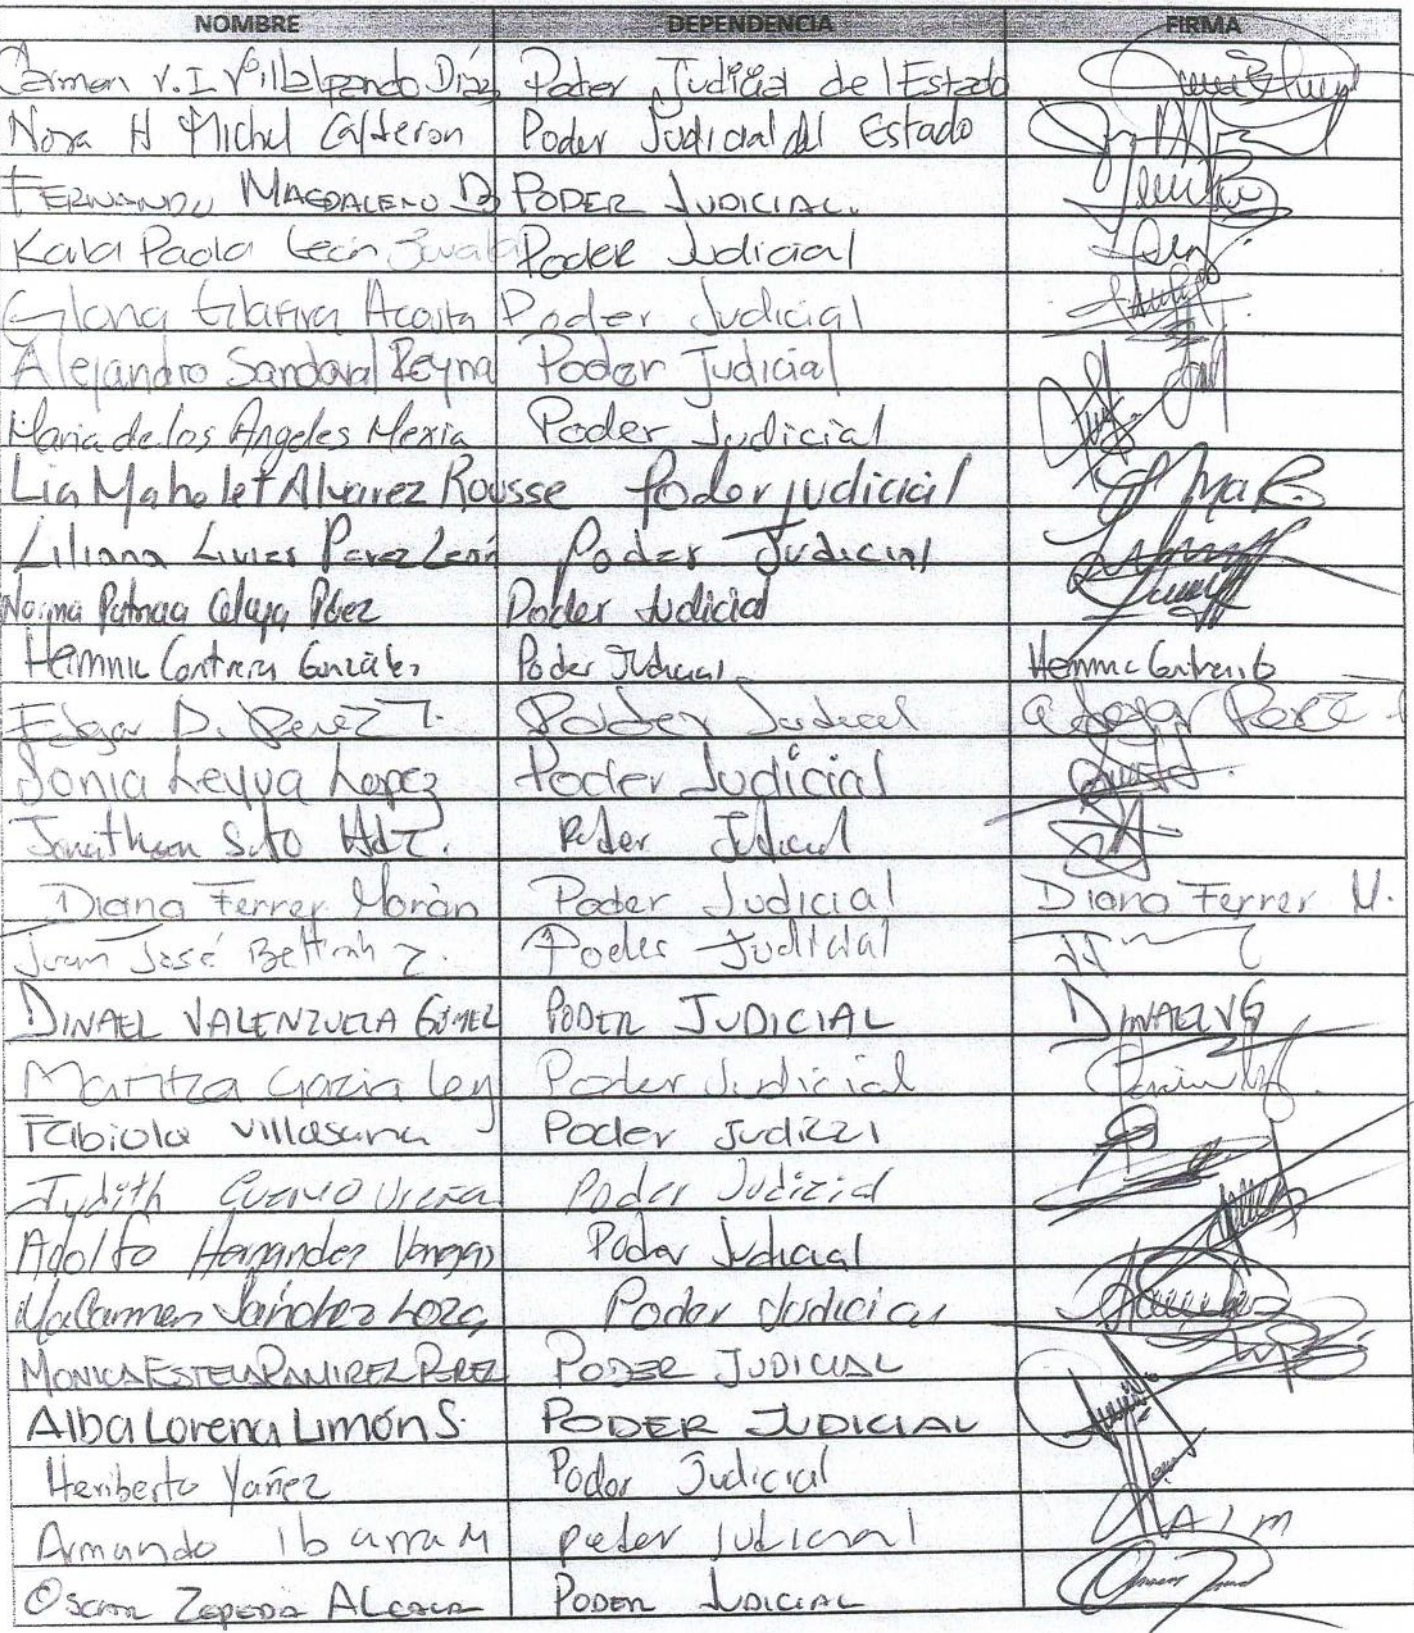 NOMBRE DEPENDENCIA FIRMA
Carmen V. I. Villalpando Díaz Poder Judicial del Estado
Nora H Michel Calderon Poder Judicial del Estado
FERNANDO MAGDALENO PODER JUDICIAL.
Karla Paola León Poder Judicial
Acosta Poder Judicial
Alejandro Sandoval Reyna Poder Judicial
Maria de los Angeles Mexia Poder Judicial
Lia Mahalet Alvarez Rousse Poder judicial
Liliana Livier Perez León Poder Judicial
Norma Patricia Celaya Páez Poder Judicial
Contreras González Poder Judicial
Edgar D. Perez T. Poder Judicial
Sonia Leyva Lopez Poder Judicial
Jonathan Soto Hdz. Poder Judicial
Diana Ferrer Morán Poder Judicial Diana Ferrer M.
Juan José Beltrán Z. Poder Judicial
DINAEL VALENZUELA GÓMEZ PODER JUDICIAL DINAEL VG
Maritza Garcia Ley Poder Judicial
Fabiola Villasana Poder Judicial
Judith Poder Judicial
Adolfo Hernandez Vanegas Poder Judicial
Ma Carmen Sánchez Loza Poder Judicial
MONICA ESTELA RAMIREZ PEREZ PODER JUDICIAL
Alba Lorena Limón S. PODER JUDICIAL
Heriberto Yañez Poder Judicial
Armando Ibarra M poder judicial A I M
Oscar ZEPEDA ALCALA PODER JUDICIAL